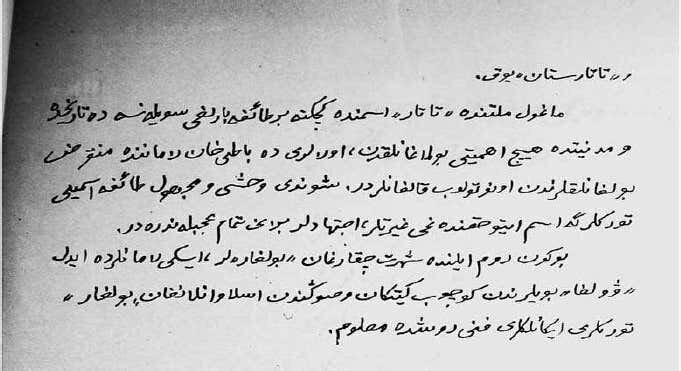 و «تاتارستان» یوق.
ماغول ملتنده «تاتار» اسمنده کچکنه بر طائفه بارلغی سویله نسه ده تاریخده
و مدنیتده هیچ اهمیتی بولماغانلقدن، اولاری ده باطی خان زماننده منقرض
بولغانلقلرندن اونوتولوب قالغانلردر. شوندی وحشی و مجهول طائفه اسمینی
تورکلرگه اسم ایتو حقنده غی غیرتلر، اجتهادلر بزنی تمام عجبله ندره در.
بوکون روم ایلنده شهرت چقارغان «بولغار»لر، ایسکی زمانلرده ایدل
«وولغا» بویلرندن کوچوب کیتکان و صوکندن اسلاوانلانغان «بولغار»
تورکلری ایکانلکلری فنی روشده معلوم.